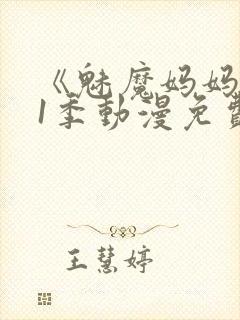 《魅魔妈妈
1季動漫免費
王慧婷